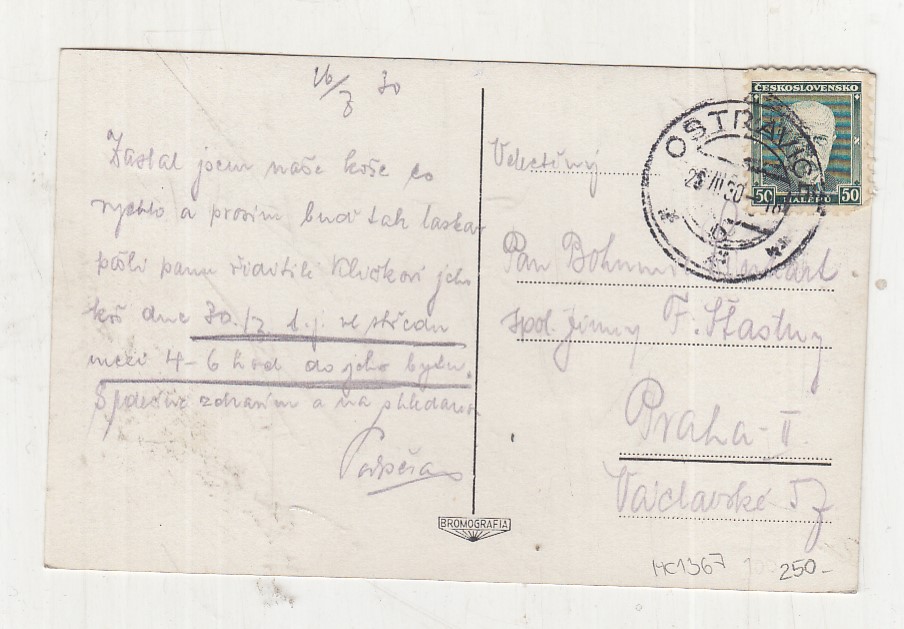 26/7 30
Zaslal jsem naše koše co
rychlo a prosím buď tak laskav
pošli panu řediteli Kličkovi jeho
koš dne 30./7. t.j. ve středu
mezi 4-6 hod do jeho bytu.
Srdečně zdravím a na shledanou
BROMOGRAFIA
ČESKOSLOVENSKO
50 HALÉŘŮ 50
OSTRAVICE
Velectěný
Pan Bohumil
spol. firmy F. Šťastny
Praha - II
Václavské 57
HC1367
250-